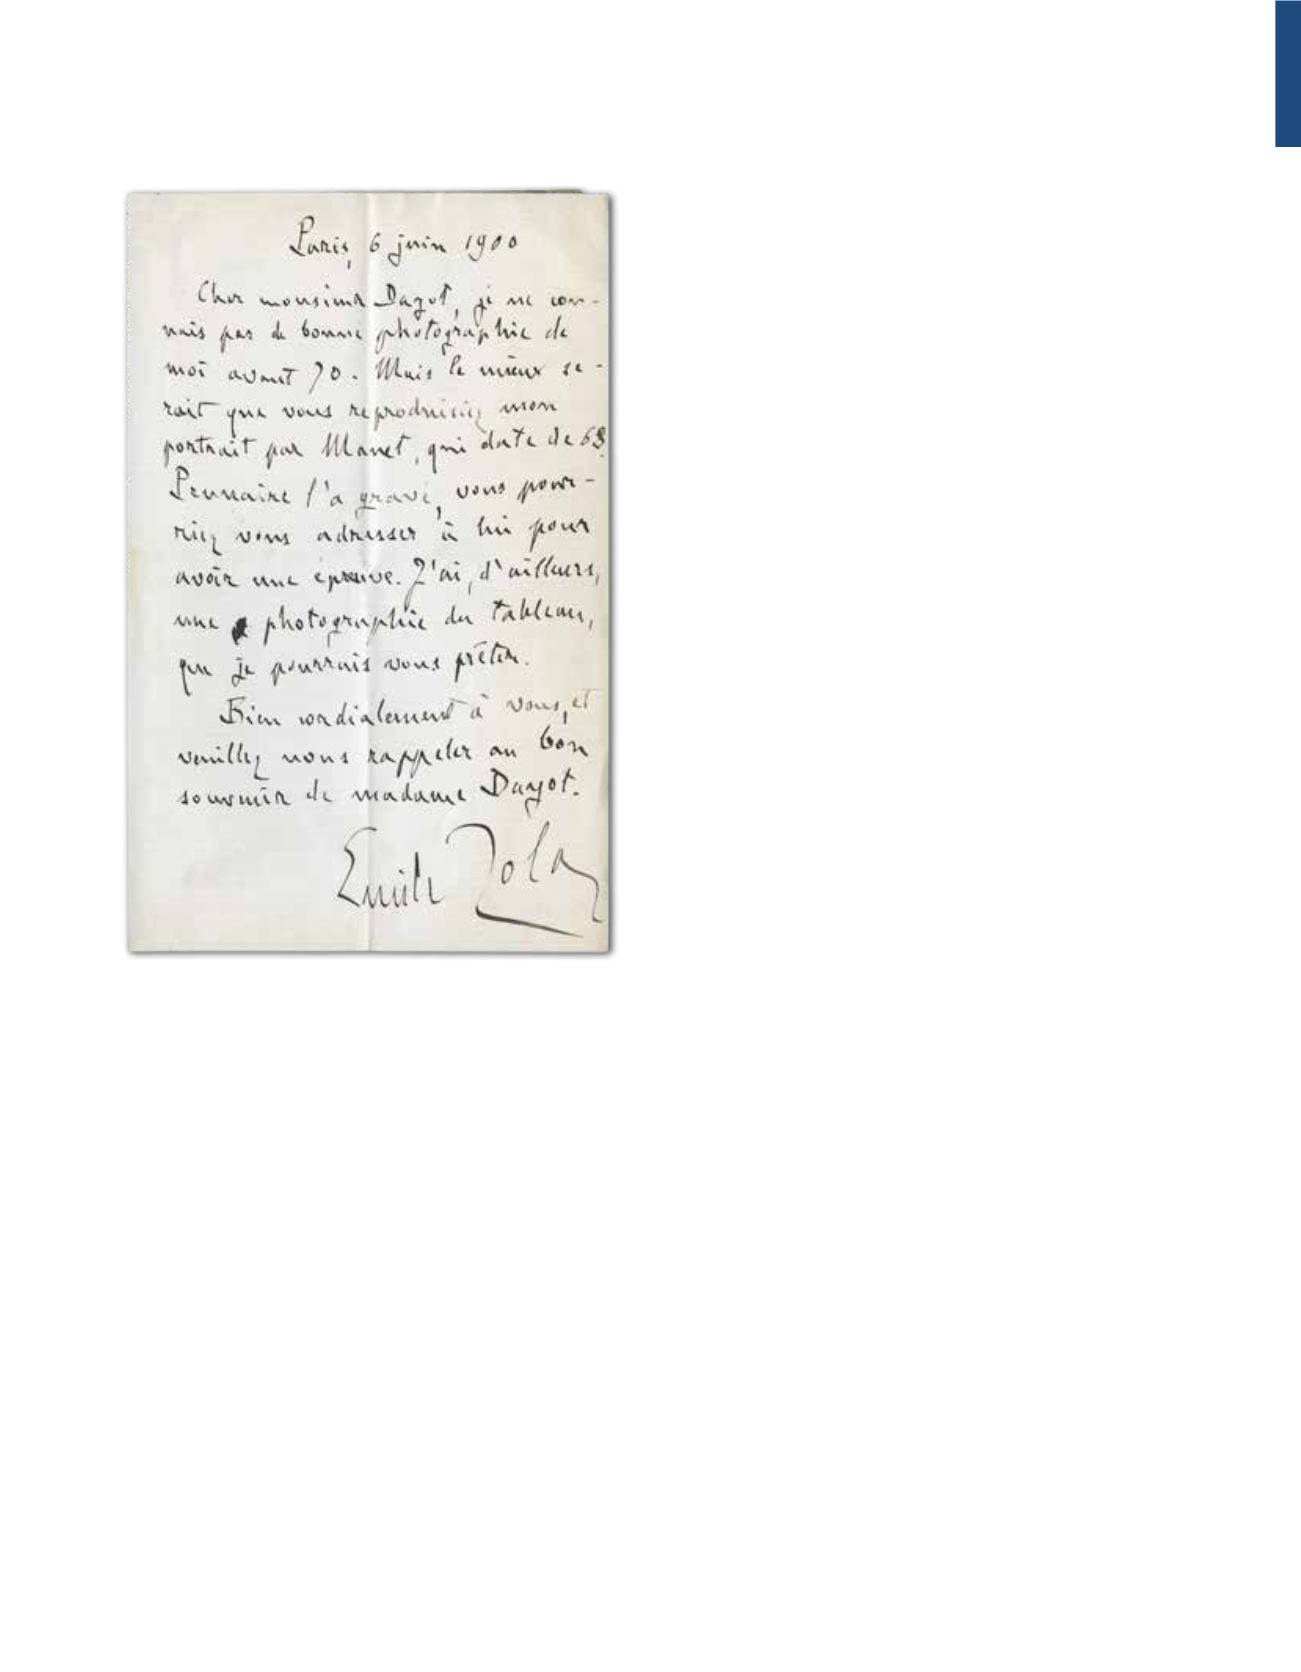 Paris, 6 juin 1900
Cher monsieur Dayot, je ne con-
nais pas de bonne photographie de
moi avant 70. Mais le mieux se-
rait que vous reproduisiez mon
portrait par Manet, qui date de 68.
l'a gravé, vous pour-
riez vous adresser à lui pour
avoir une épreuve. J'ai, d'ailleurs,
une photographie du tableau,
que je pourrais vous prêter.
Bien cordialement à vous, et
veuillez nous rappeler au bon
souvenir de madame Dayot.
Emile Zola